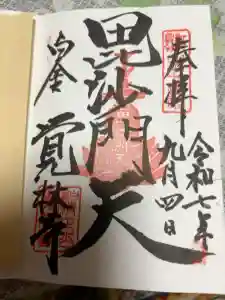 奉拝
令和七年
九月四日
毘沙門天
白金
覚林寺